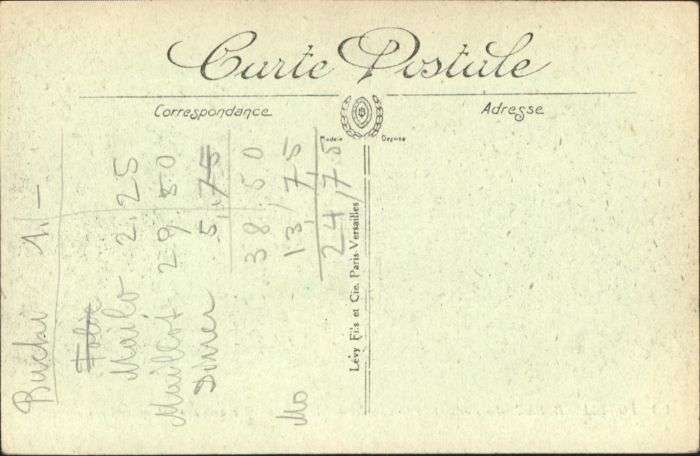 Carte Postale
Correspondance
Adresse
Modèle Déposé
Lévy Fils et Cie, Paris-Versailles
1.-
Mailo 2,25
Maillot 29 50
Diner 5,75
38 50
Mo 13,75
24,75